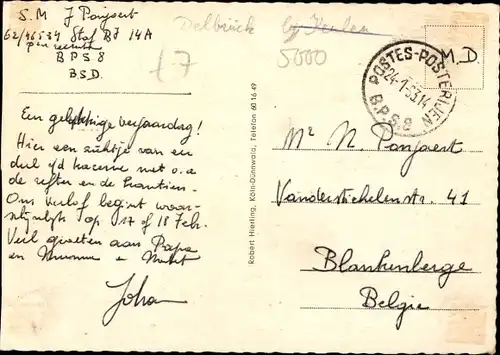 S.M J Panjaert
62/46534 Staf BJ 14A
B P S 8
B.S.D.
Dellbrück by Keulen
5000
£7
M.D.
POSTES-POSTERIJEN
24-1-63.14
B.P.S.8
Een gelukkige verjaardag!
Hier een zichtje van een
deel v/d kazerne met o.a
de refter en de kantien.
Ons verlof begint waar-
schijnlijk op 17 of 18 Febr.
Veel groeten aan Papa
en Mamma en
Johan
Robert Hierling, Köln-Dünnwald, Telefon 60 16 49
Mr N. Panjaert
Vanderstichelenstr. 41
Blankenberge
Belgie